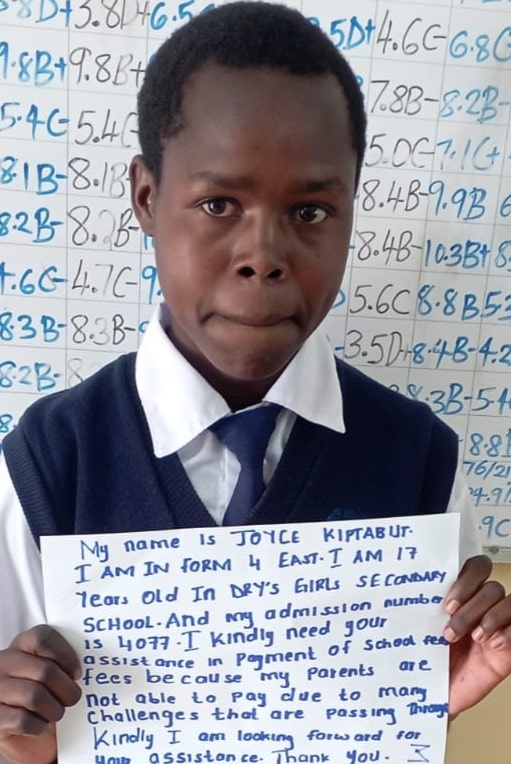 3.8D+ 3.8D+ 6.5
9.8B+ 9.8B+
5.4C- 5.4C
8.1B- 8.1B
8.2B- 8.2B-
4.7C-
8.3B- 8.3B-
8.2B-
5D+ 4.6C- 6.8C
7.8B- 8.2B-
5.0C- 7.1C+
8.4B- 9.9B 6
8.4B- 10.3B+ 8
5.6C 8.8B 5
3.5D+ 8.4B- 4.2
3B- 5.4
8.8
76/21
4.9
.9C
My name is JOYCE KIPTABUT.
I AM IN FORM 4 EAST. I AM 17
Years old In DRY'S GIRLS SECONDARY
SCHOOL. And my admission number
is 4077. I kindly need your
assistance in Payment of School fees
fees because my Parents are
not able to Pay due to many
challenges that are passing Through
Kindly I am looking forward for
your assistance. Thank you.